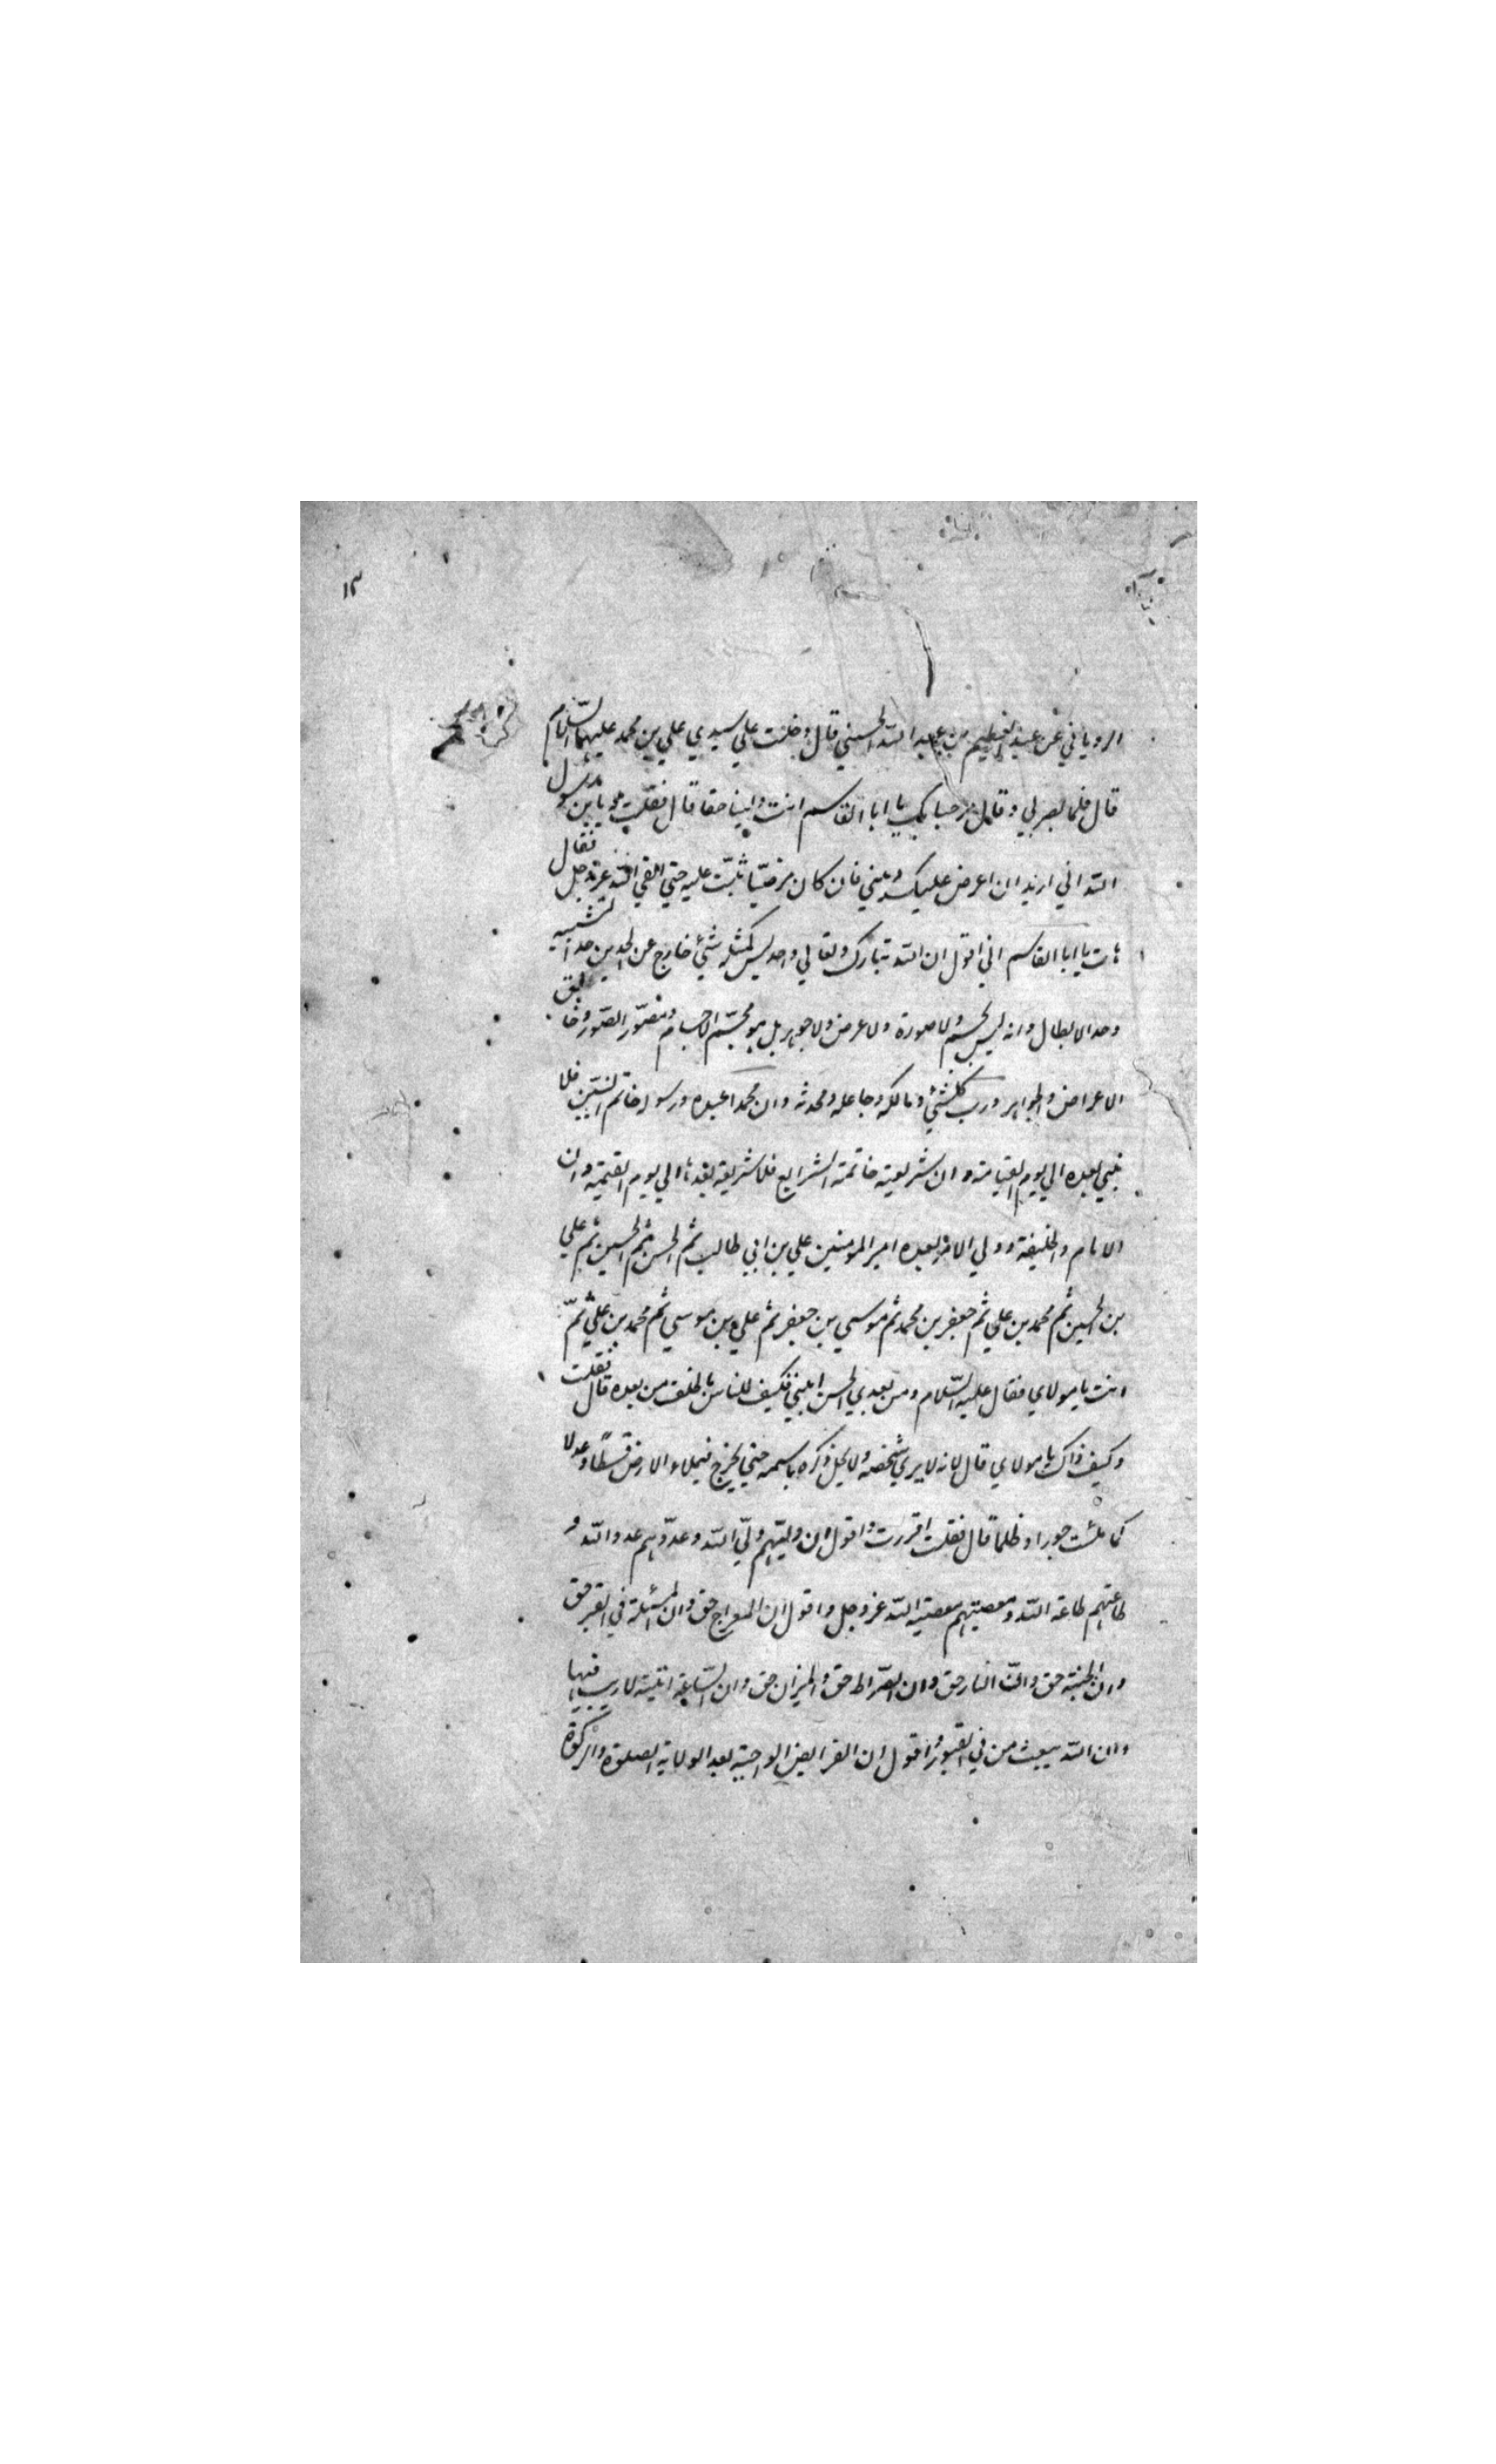 ١٣
الروياني عن عبد العظيم بن عبد الله الحسني قال دخلت علي سيدي علي بن محمد عليهما السّلام
قال فلما بصر بي وقال مرحبا بك يا ابا القاسم انت ولينا حقا قال فقلت له يا بن رسول
الله اني اريد ان اعرض عليك ديني فان كان مرضيّا ثبّت عليه حتي القي الله عز وجل فقال
هات يا ابا القاسم اني اقول ان الله تبارك وتعالي واحد ليس كمثله شيئ خارج عن الحدين حد التشبيه
وحد الابطال وانه ليس بجسم ولا صورة ولا عرض ولا جوهر بل هو مجسّم الاجسام ومصوّر الصّور وخالق
الاعراض والجواهر ورب كلشيئ ومالكه وجاعله ومحدثه وان محمدا عبده ورسوله خاتم النبيّين فلا
نبي بعده الي يوم القيامة وان شريعته خاتمة الشرايع فلا شريعة بعدها الي يوم القيمة وان
الامام والخليفة وولي الامر بعده امير المومنين علي بن ابي طالب ثم الحسن ثم الحسين ثم علي
بن الحسين ثم محمد بن علي ثم جعفر بن محمد ثم موسي بن جعفر ثم علي بن موسي ثم محمد بن علي ثمّ
انت يا مولاي فقال عليه السّلام ومن بعدي الحسن ابني فكيف للناس بالخلف من بعده قال فقلت
وكيف ذاك يا مولاي قال لانه لا يري شخصه ولا يحل ذكره باسمه حتي يخرج فيملاء الارض قسطًا وعدلا
كما ملئت جورا وظلما قال فقلت اقررت واقول ان وليّهم وليّ الله وعدوّهم عدو الله و
طاعتهم طاعة الله ومعصيتهم معصية الله عز وجل واقول ان المعراج حق وان المسئلة في القبر حق
وان الجنة حق وانّ النار حق وان الصّراط حق والميزان حق وان السّاعة اتية لا ريب فيها
وان الله يبعث من في القبور واقول ان الفرايض الواجبة بعد الولاية الصلوة والزكوة